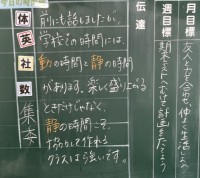 月目標 友人と力を合わせ、仲よく生活しよう
週目標 期末テストへむけて計画をたてよう
伝達
前にも話しましたが、
学校での時間には、
動の時間と静の時間
があります。楽しく盛り上がる
ときだけじゃなく、
静の時間こそ、
協力して作れる
クラスはら強いです。
体
英
社
数
集